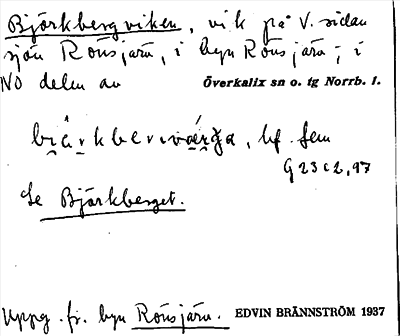 Björkbergviken, vik på V. sidan
sjön Rönsjärv, i byn Rönsjärv, i
NO delen av Överkalix sn o. tg Norrb. l.
bf. fem
G 23 c 2, 97
Se Björkberget.
Uppg. fr. byn Rönsjärv. EDVIN BRÄNNSTRÖM 1937